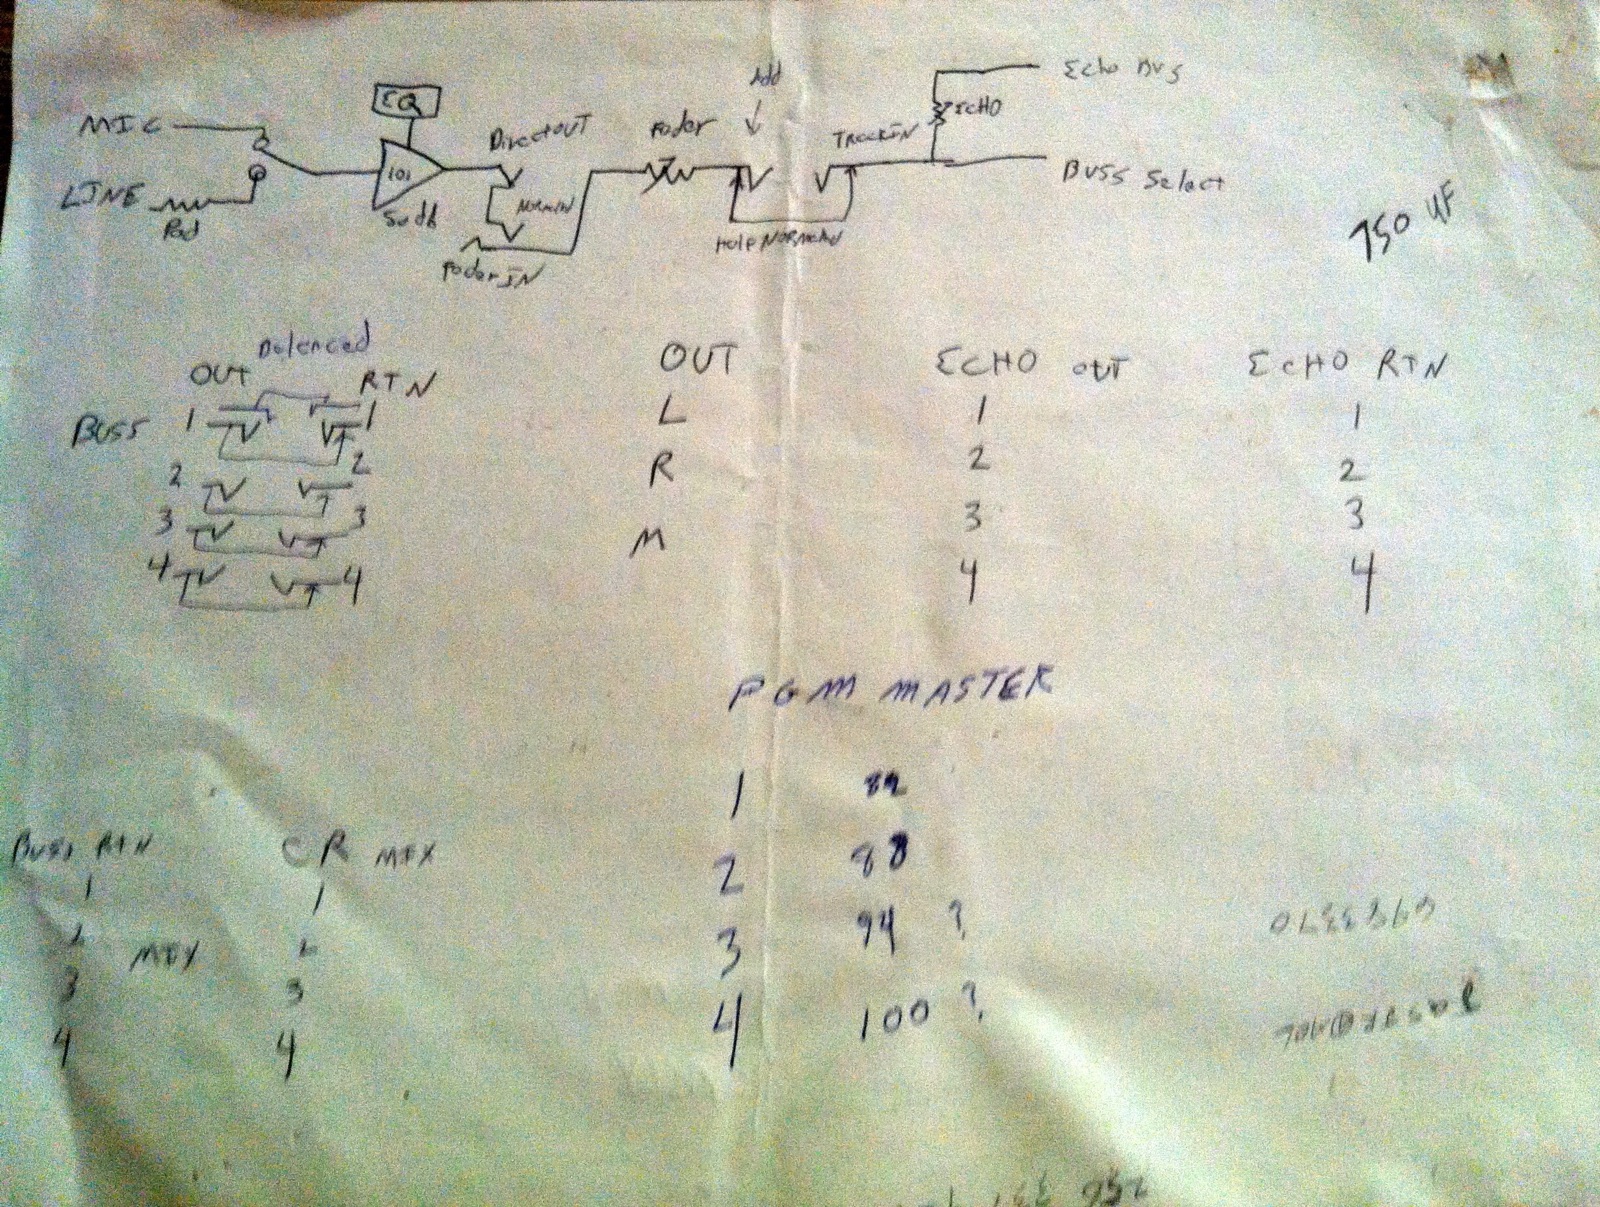 Add
Echo Bus
EQ
ECHO
MIC
Direct OUT
Fader
TRACK IN
101
BUSS Select
LINE
Pad
Normal
Fader IN
750 UF
Balanced
OUT
RTN
OUT
ECHO OUT
ECHO RTN
BUSS
1 1
L
1
1
2 2
R
2
2
3 3
M
3
3
4 4
4
4
PGM MASTER
1 82
BUSS RTN
CR MIX
2 88
1
1
3 94 ?
2
MIX
2
3
3
4 100 ?
4
4